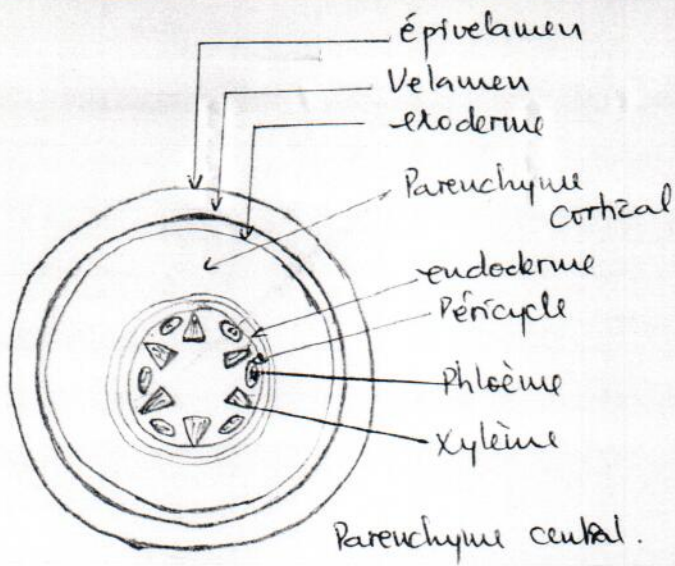 épivelamen
Velamen
exoderme
Parenchyme
cortical
endoderme
Péricycle
Phloème
Xylème
Parenchyme central.